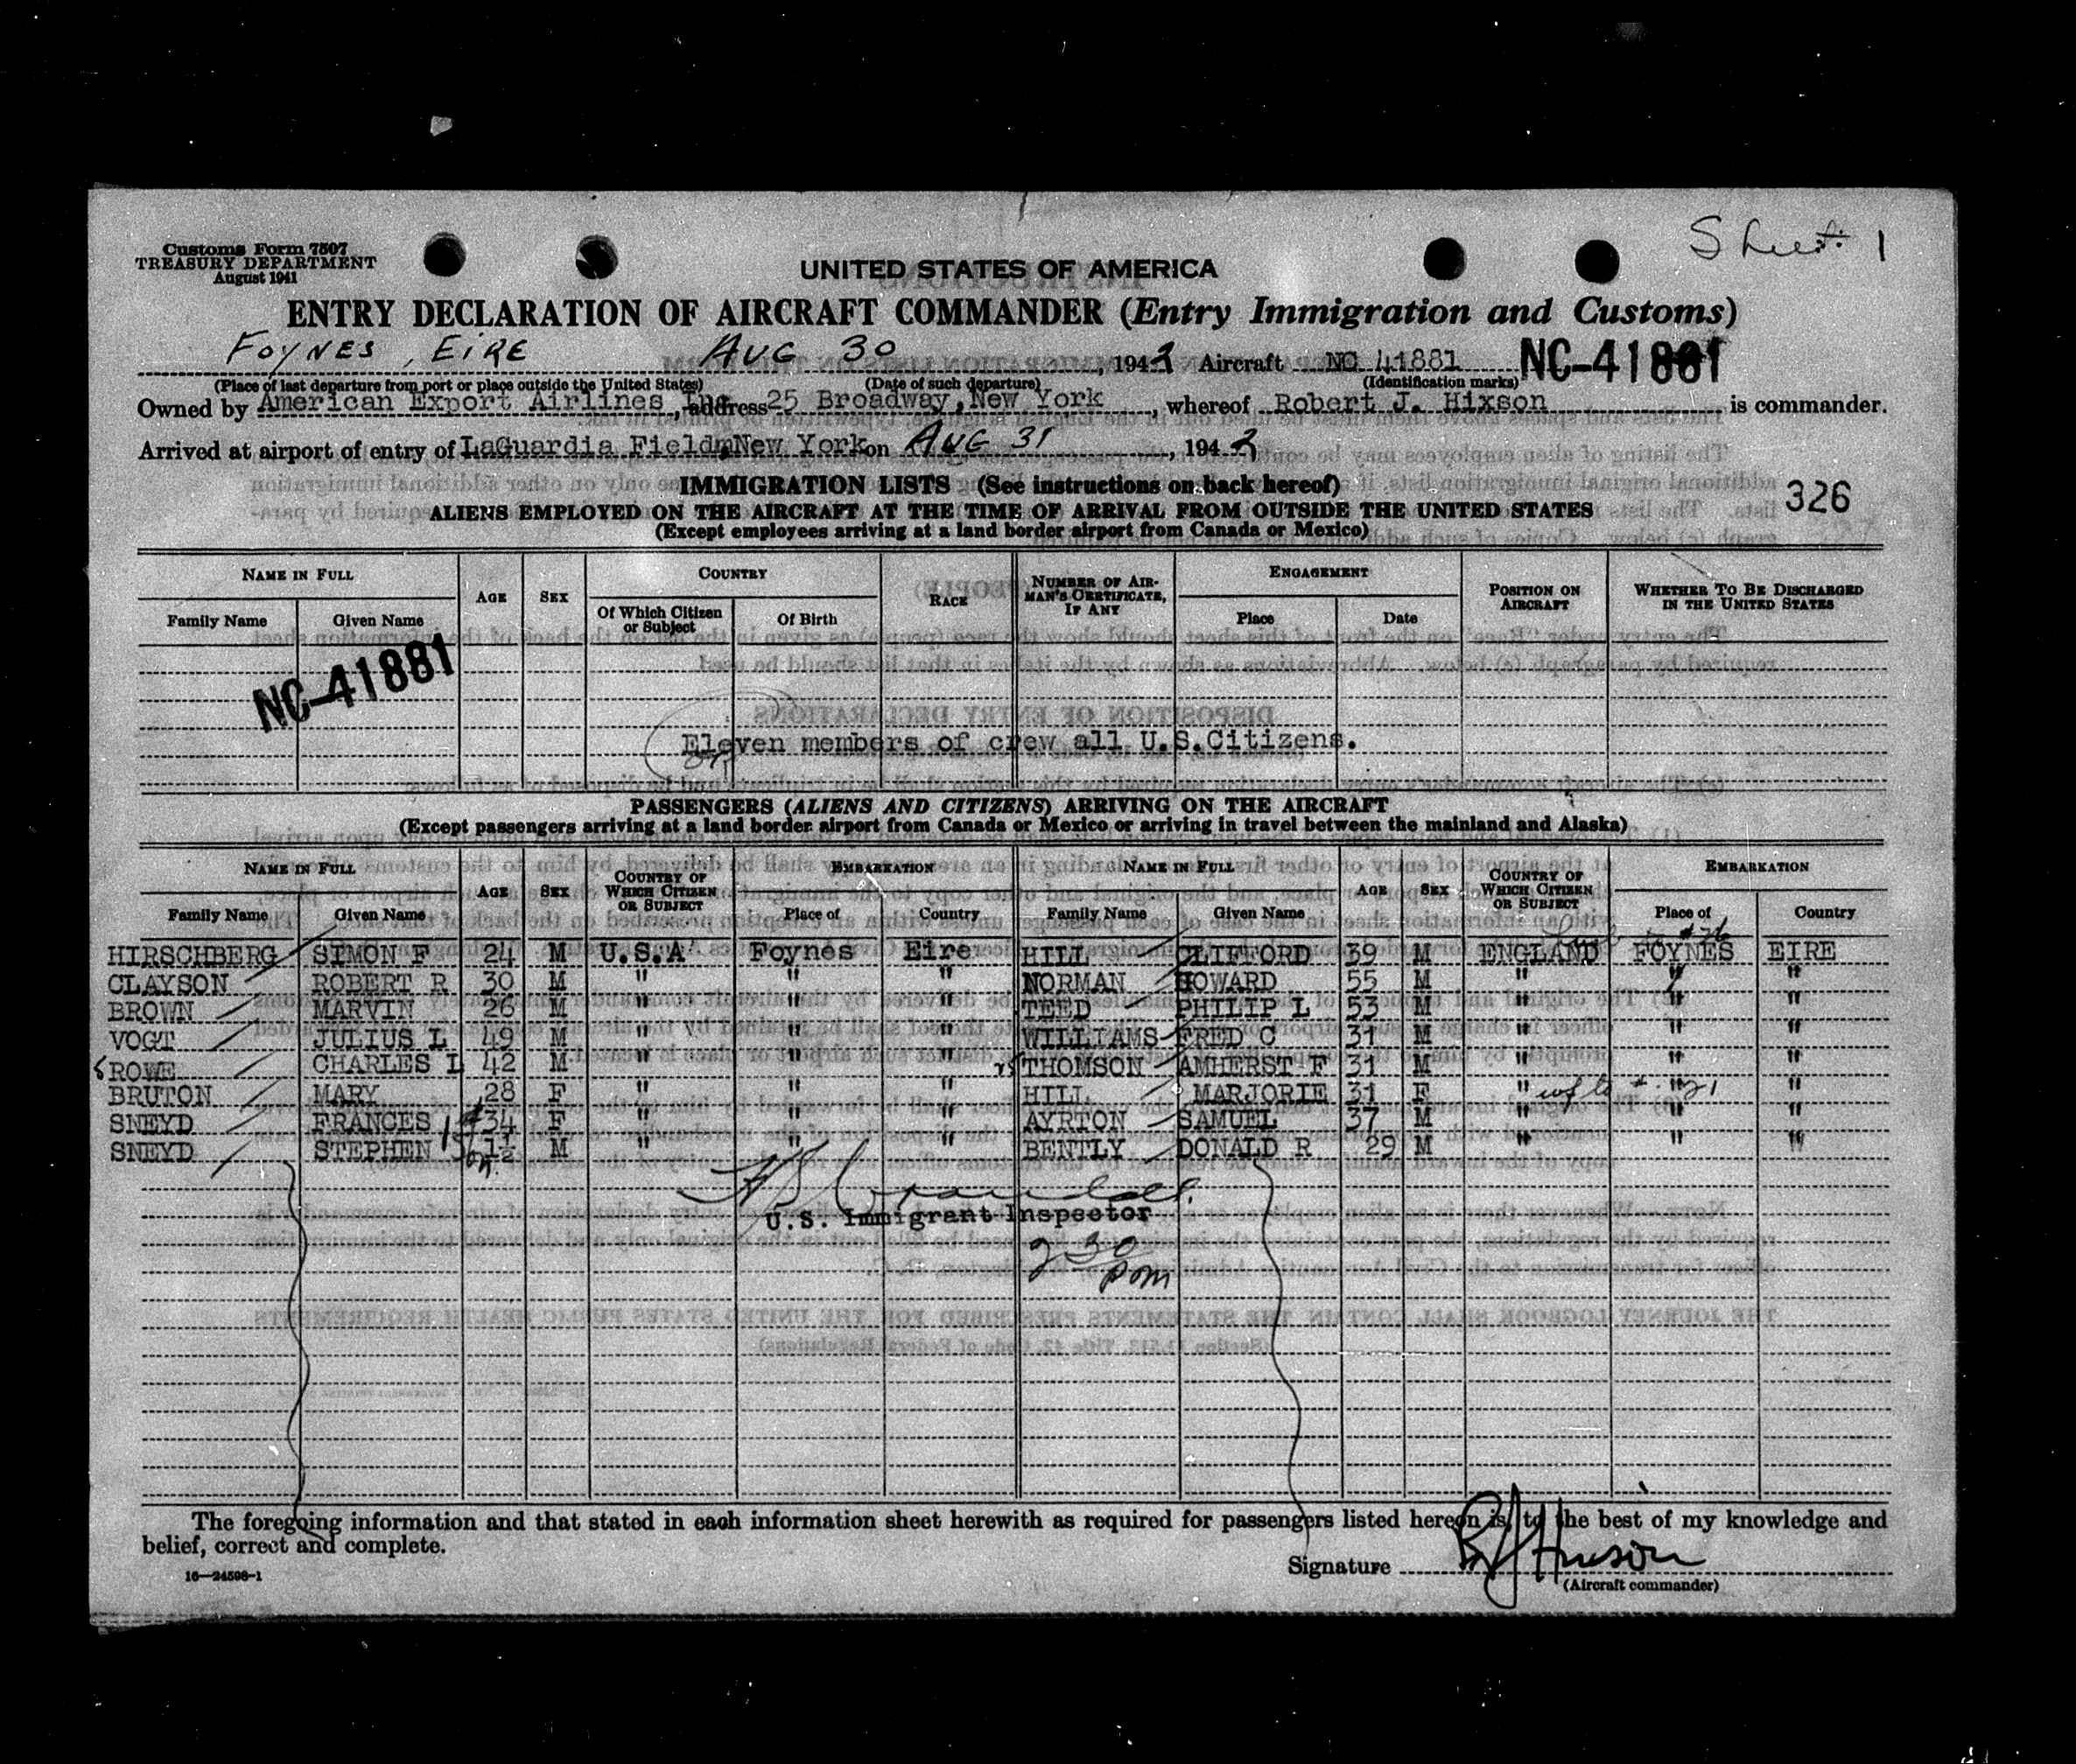 Sheet 1
Customs Form 7507
TREASURY DEPARTMENT
August 1941
UNITED STATES OF AMERICA
ENTRY DECLARATION OF AIRCRAFT COMMANDER (Entry Immigration and Customs)
FOYNES, EIRE AUG 30, 1942 Aircraft NC 41881 NC-41881
(Place of last departure from port or place outside the United States) (Date of such departure) (Identification marks)
Owned by American Export Airlines Inc, address 25 Broadway, New York, whereof Robert J. Hixson is commander.
Arrived at airport of entry of LaGuardia Field, New York on AUG 31, 1942
IMMIGRATION LISTS (See instructions on back hereof)
326
ALIENS EMPLOYED ON THE AIRCRAFT AT THE TIME OF ARRIVAL FROM OUTSIDE THE UNITED STATES
(Except employees arriving at a land border airport from Canada or Mexico)
NAME IN FULL AGE SEX COUNTRY RACE NUMBER OF AIRMAN'S CERTIFICATE, IF ANY ENGAGEMENT POSITION ON AIRCRAFT WHETHER TO BE DISCHARGED IN THE UNITED STATES
Family Name Given Name Of Which Citizen or Subject Of Birth Place Date
NC-41881
Eleven members of crew all U.S.Citizens.
PASSENGERS (ALIENS AND CITIZENS) ARRIVING ON THE AIRCRAFT
(Except passengers arriving at a land border airport from Canada or Mexico or arriving in travel between the mainland and Alaska)
NAME IN FULL AGE SEX COUNTRY OF WHICH CITIZEN OR SUBJECT EMBARKATION NAME IN FULL AGE SEX COUNTRY OF WHICH CITIZEN OR SUBJECT EMBARKATION
Family Name Given Name Place of Country Family Name Given Name Place of Country
HIRSCHBERG SIMON F 24 M U.S.A Foynes Eire HILL CLIFFORD 39 M ENGLAND FOYNES EIRE
CLAYSON ROBERT R 30 M " " " NORMAN HOWARD 55 M " " "
BROWN MARVIN 26 M " " " TEED PHILIP L 53 M " " "
VOGT JULIUS L 49 M " " " WILLIAMS FRED C 31 M " " "
ROWE CHARLES L 42 M " " " THOMSON AMHERST F 31 M " " "
BRUTON MARY 28 F " " " HILL MARJORIE 31 F " " "
SNEYD FRANCES 34 F " " " AYRTON SAMUEL 37 M " " "
SNEYD STEPHEN 1½ M " " " BENTLY DONALD R 29 M " " "
U.S. Immigrant Inspector
2 30 pm
The foregoing information and that stated in each information sheet herewith as required for passengers listed hereon is, to the best of my knowledge and
belief, correct and complete.
Signature RJ Hixson
(Aircraft commander)
16—24598-1